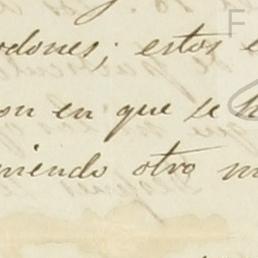 odones; estos e
on en que se h
niendo otro m